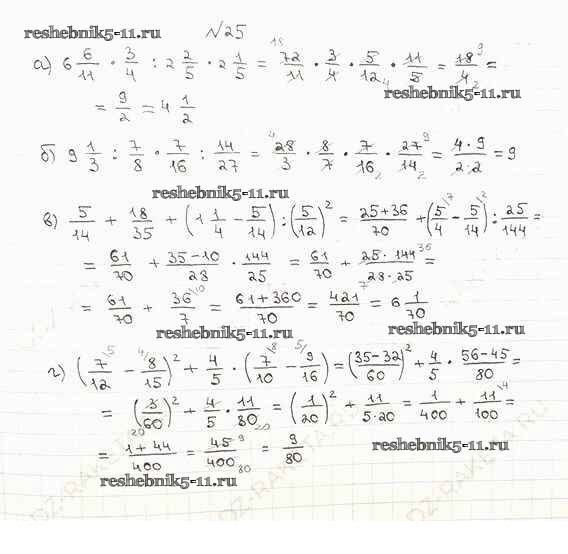 reshebnik5-11.ru №25
а) 6 6/11 · 3/4 : 2 2/5 · 2 1/5 = 72/11 · 3/4 · 5/12 · 11/5 = 18/4 =
reshebnik5-11.ru
= 9/2 = 4 1/2
б) 9 1/3 : 7/8 · 7/16 : 14/27 = 28/3 · 8/7 · 7/16 · 27/14 = 4·9/2·2 = 9
reshebnik5-11.ru
в) 5/14 + 18/35 + (1 1/4 - 5/14) : (5/12)² = 25+36/70 + (5/4 - 5/14) : 25/144 =
= 61/70 + 35-10/28 · 144/25 = 61/70 + 25·144/28·25 =
= 61/70 + 36/7 = 61+360/70 = 421/70 = 6 1/70
reshebnik5-11.ru reshebnik5-11.ru
г) (7/12 - 8/15)² + 4/5 · (7/10 - 9/16) = (35-32/60)² + 4/5 · 56-45/80 =
= (3/60)² + 4/5 · 11/80 = (1/20)² + 11/5·20 = 1/400 + 11/100 =
= 1+44/400 = 45/400 = 9/80
reshebnik5-11.ru
reshebnik5-11.ru